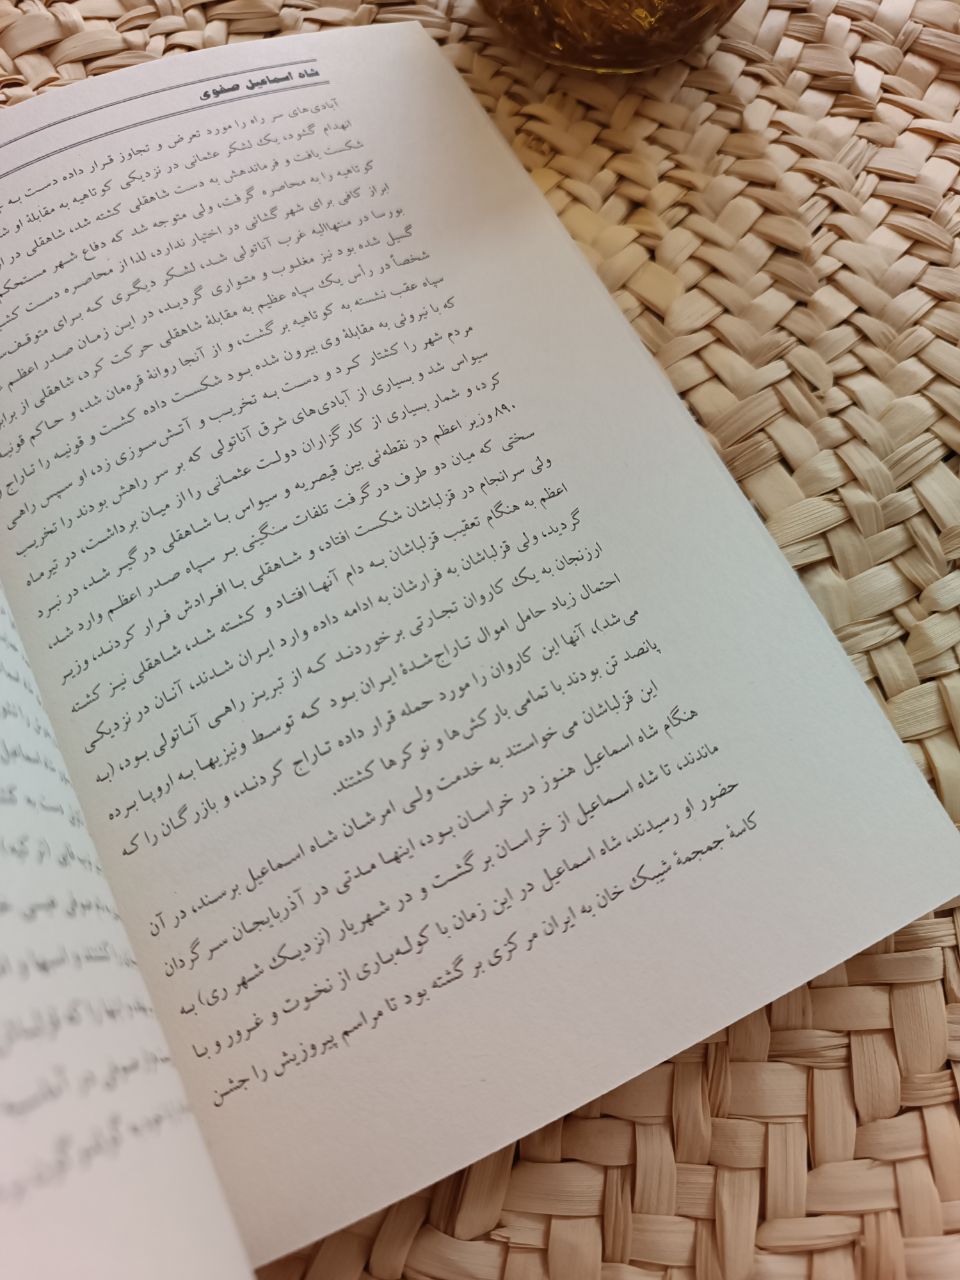 شاه اسماعیل صفوی
آبادی‌های سر راه را مورد تعرض و تجاوز قرار داده دست به
انهدام گشود، یک لشکر عثمانی در نزدیکی کوتاهیه به مقابلهٔ او
شکست یافت و فرماندهش به دست شاهقلی کشته شد، شاهقلی در
کوتاهیه را به محاصره گرفت، ولی متوجه شد که دفاع شهر مستحکم
ابزار کافی برای شهر گشائی در اختیار ندارد، لذا از محاصره دست
بورسا در منتهاالیه غرب آناتولی شد، لشکر دیگری که برای
گسیل شده بود نیز مغلوب و متواری گردید، در این زمان صدر اعظم
شخصاً در رأس یک سپاه عظیم به مقابلهٔ شاهقلی حرکت کرد، شاهقلی از
سپاه عقب نشسته به کوتاهیه برگشت، و از آنجا روانهٔ قره‌مان شد، و حاکم قونیه
که با نیروئی به مقابلهٔ وی بیرون شده بود شکست داده کشت و قونیه را تاراج
مردم شهر را کشتار کرد و دست به تخریب و آتش‌سوزی زد، او سپس راهی
سیواس شد و بسیاری از آبادی‌های شرق آناتولی که بر سر راهش بودند را تخریب
کرد، و شمار بسیاری از کارگزاران دولت عثمانی را از میان برداشت، در تیرماه
۸۹۰ وزیر اعظم در نقطه‌ئی بین قیصریه و سیواس با شاهقلی درگیر شد، در نبرد
سختی که میان دو طرف در گرفت تلفات سنگینی بر سپاه صدر اعظم وارد شد،
ولی سرانجام در قزلباشان شکست افتاد، و شاهقلی با افرادش فرار کردند، وزیر
اعظم به هنگام تعقیب قزلباشان به دام آنها افتاد و کشته شد، شاهقلی نیز کشته
گردید، ولی قزلباشان به فرارشان به ادامه داده وارد ایران شدند، آنان در نزدیکی
ارزنجان به یک کاروان تجارتی برخوردند که از تبریز راهی آناتولی بود، (به
احتمال زیاد حامل اموال تاراج‌شدهٔ ایران بود که توسط ونیزیها به اروپا برده
می‌شد)، آنها این کاروان را مورد حمله قرار داده تاراج کردند، و بازرگان را که
پانصد تن بودند با تمامی بارکش‌ها و نوکرها کشتند.
این قزلباشان می‌خواستند به خدمت ولی امرشان شاه اسماعیل برسند، در آن
هنگام شاه اسماعیل هنوز در خراسان بود، اینها مدتی در آذربایجان سرگردان
ماندند، تا شاه اسماعیل از خراسان برگشت و در شهریار (نزدیک شهر ری) به
حضور او رسیدند، شاه اسماعیل در این زمان با کوله‌باری از نخوت و غرور و با
کاسهٔ جمجمهٔ شیبک خان به ایران مرکزی برگشته بود تا مراسم پیروزیش را جشن